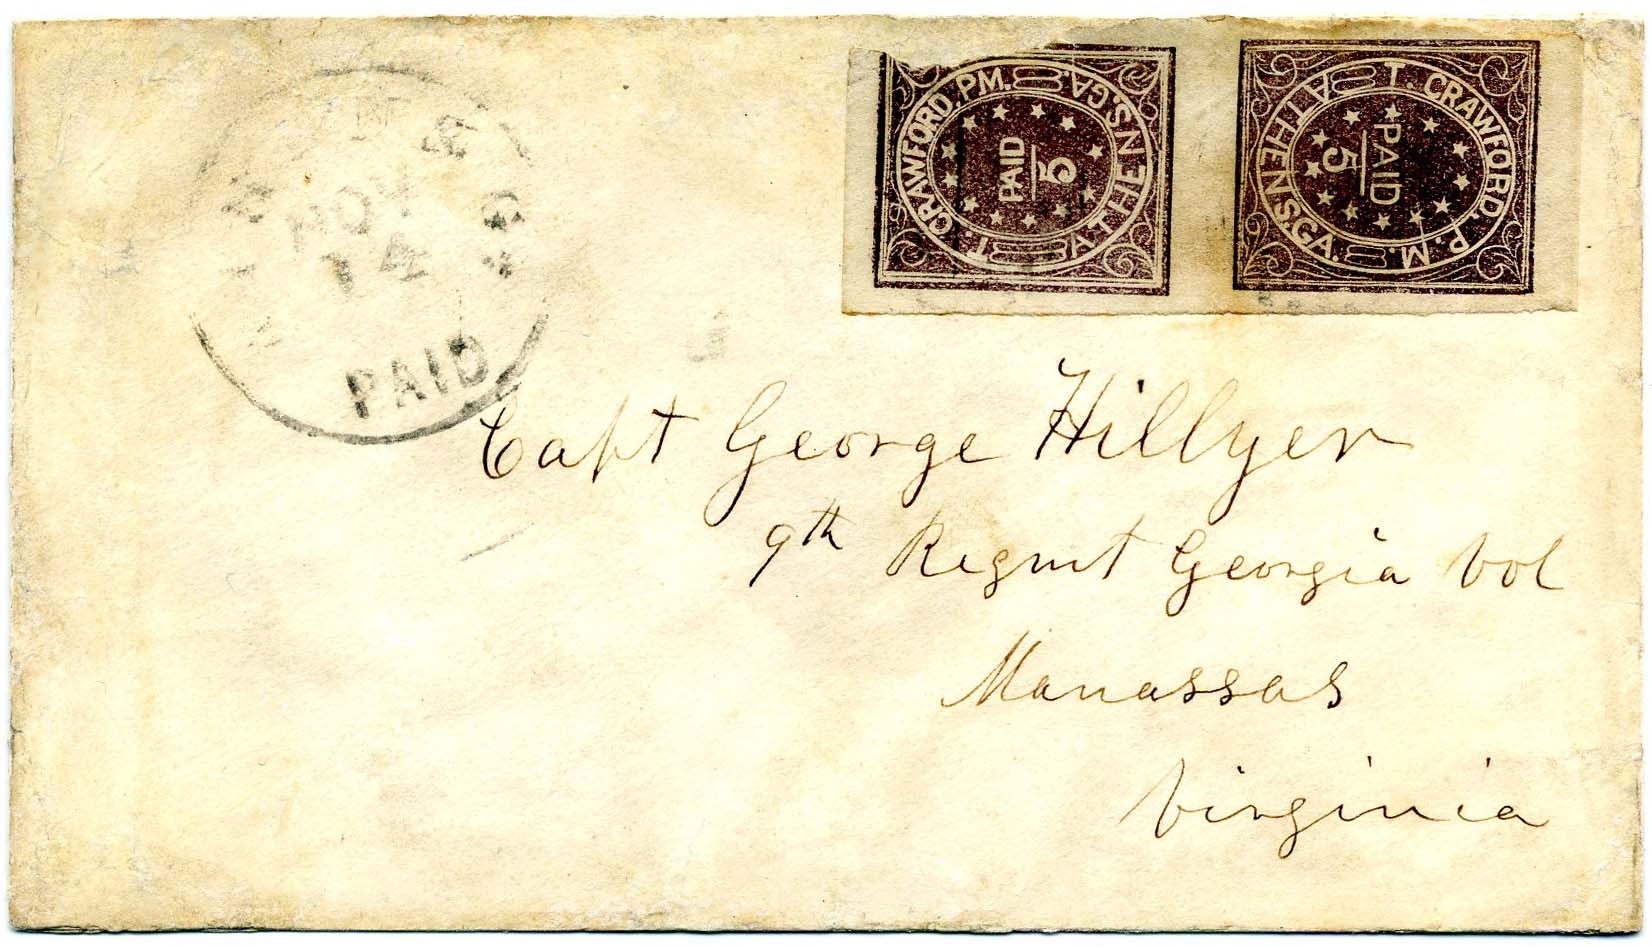 T. CRAWFORD, P.M.
ATHENS, GA.
PAID
5
T. CRAWFORD, P.M.
ATHENS, GA.
PAID
5
NOV
14
PAID
Capt George Hillyer
9th Regmt Georgia Vol
Manassas
Virginia